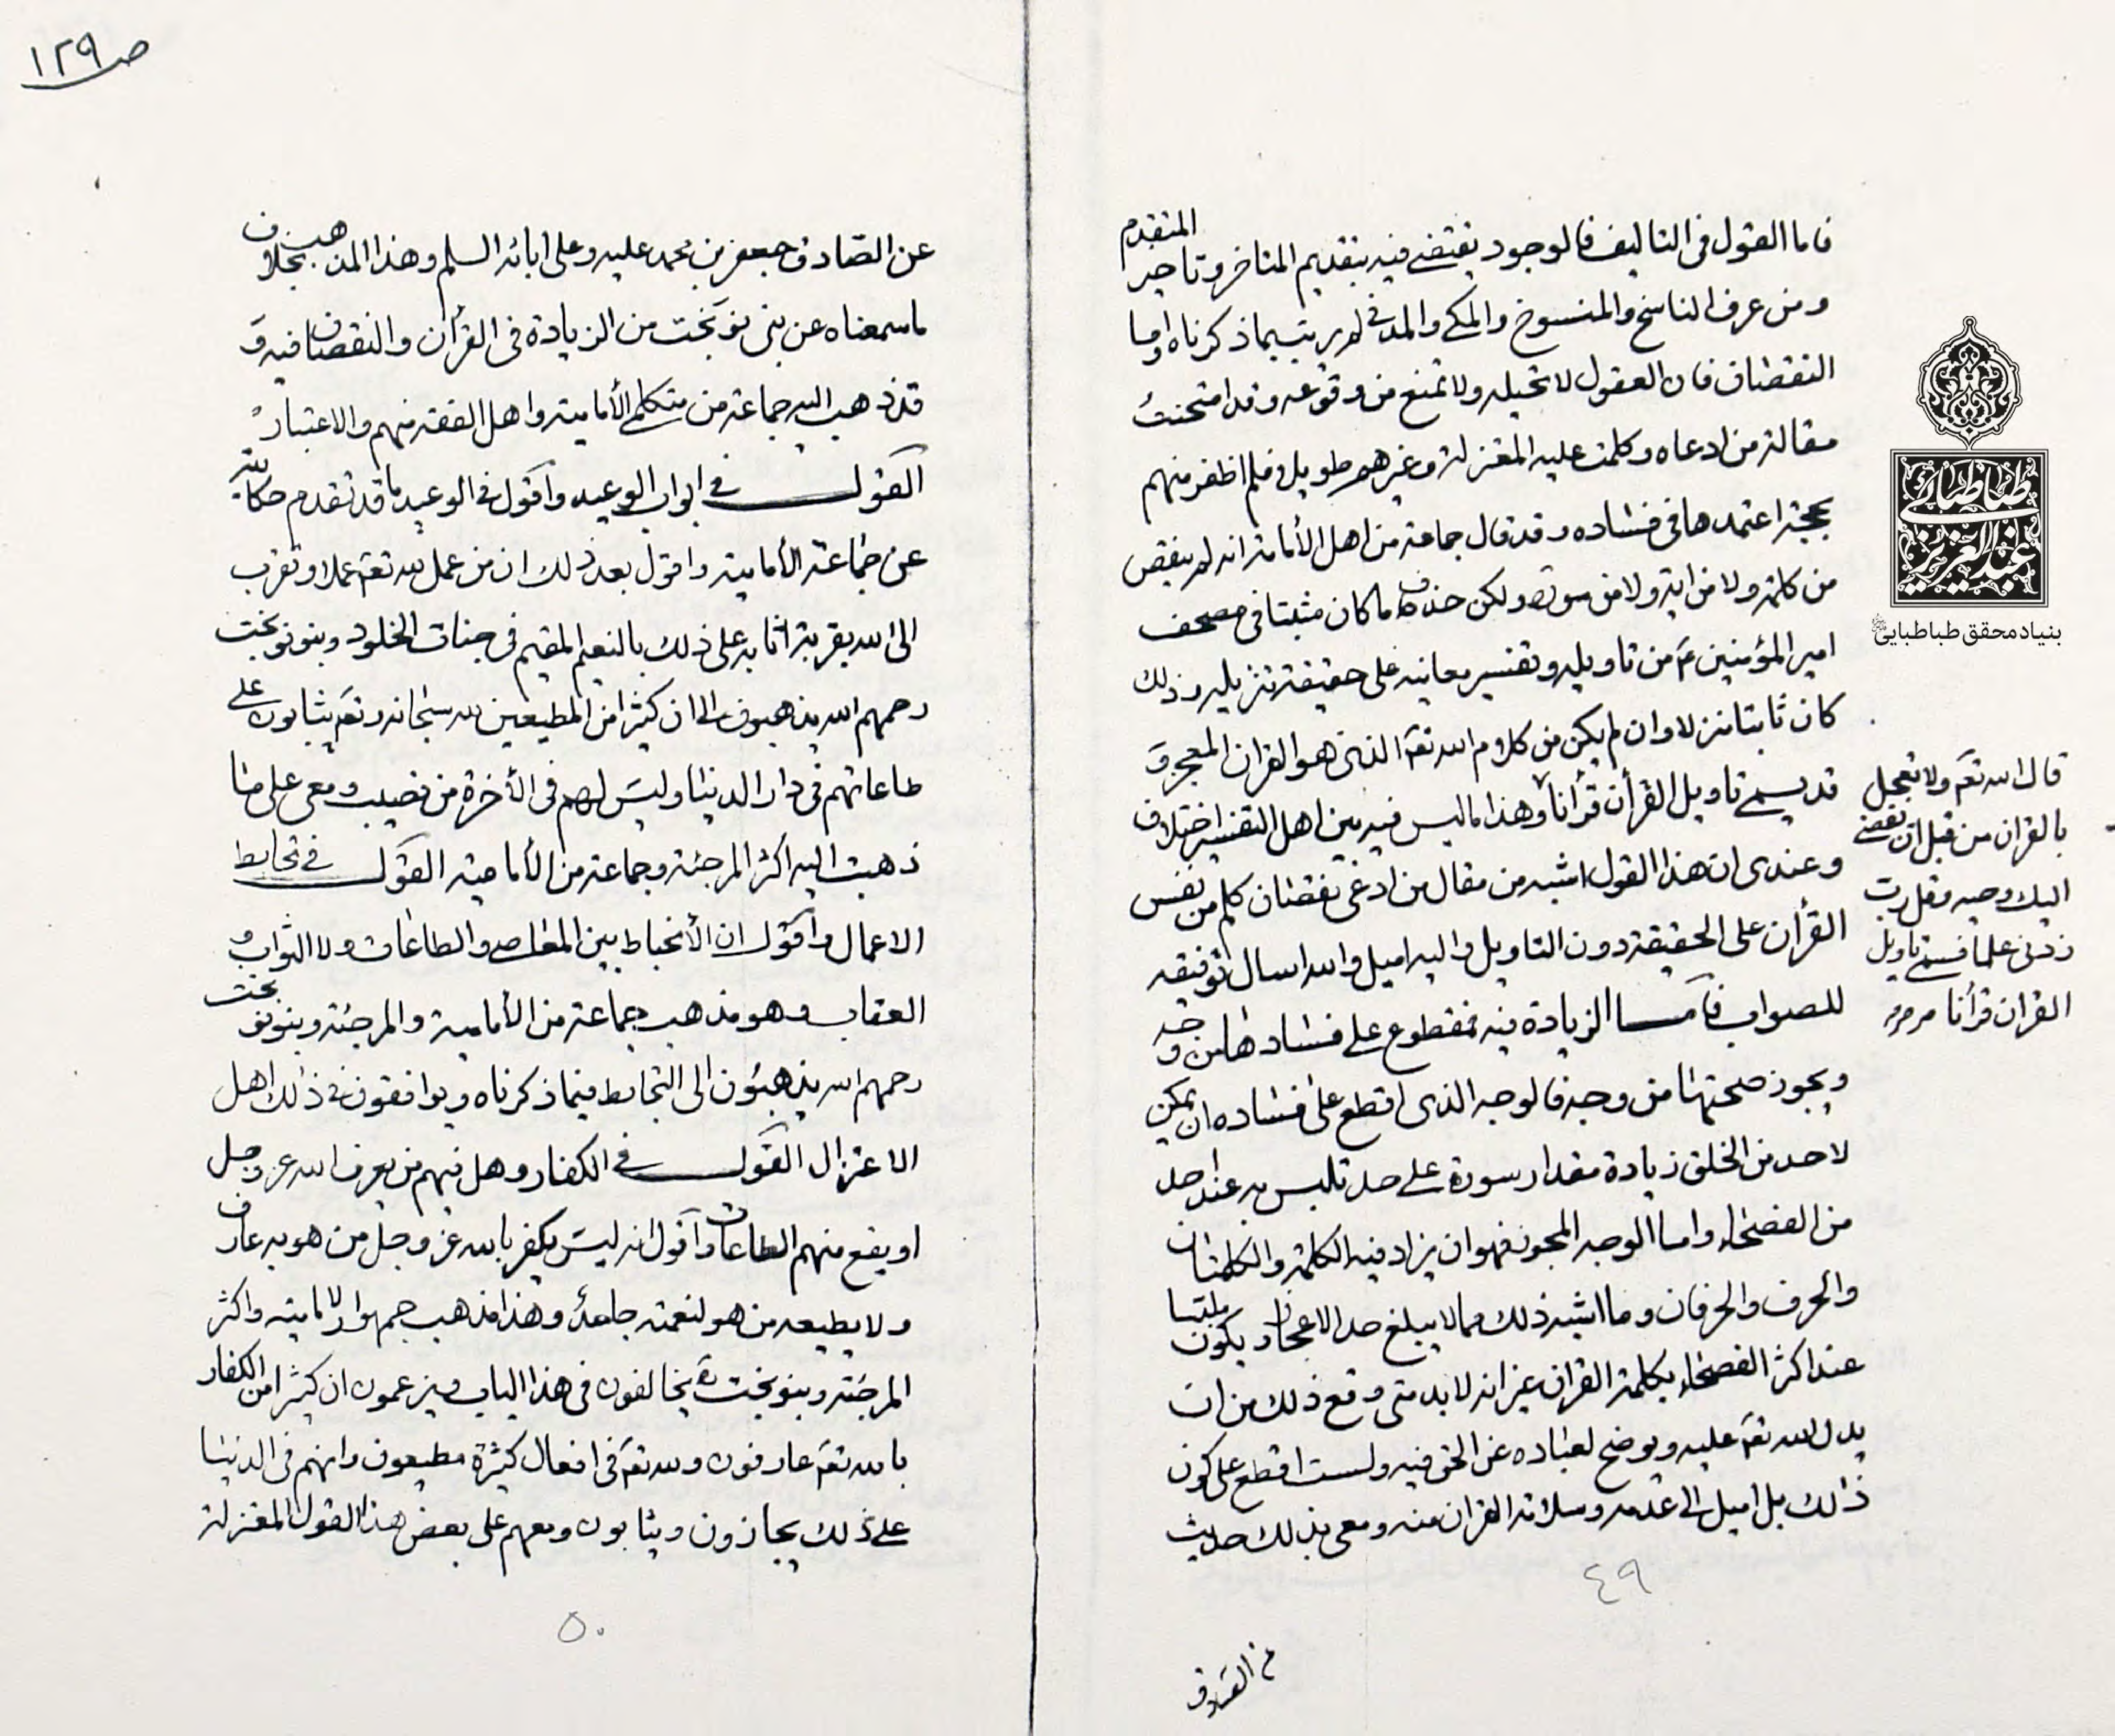 فاما القول فى التاليف فالوجود يقتضى فيه بتقديم المتاخر وتاخير المتقدم
ومن عرف الناسخ والمنسوخ والمكى والمدنى لم يرتب بما ذكرناه واما
النقصان فان العقول لا تحيله ولا تمنع من وقوعه وقد امتحنت
مقالة من ادعاه وكلمت عليه المعتزلة وغيرهم طويلا فلم اظفر منهم
بحجة اعتمدها فى فساده وقد قال جماعة من اهل الأمامة انه لم ينقص
من كلمة ولا من اية ولا من سورة ولكن حذف ما كان مثبتا فى مصحف
امير المؤمنين ع من تاويله وتفسير معانيه على حقيقة تنزيله وذلك
كان ثابتا منزلا وان لم يكن من كلام الله تعه الذى هو القران المعجز و
قد يسمى تاويل القرأن قرأنا وهذا ما ليس فيه بين اهل التفسير اختلاف
وعندى ان هذا القول اشبه من مقال من ادعى نقصان كلم من نفس
القرأن على الحقيقة دون التاويل واليه اميل والله اسال توفيقه
للصواب فأما الزيادة فيه فمقطوع على فسادها من وجه
ويجوز صحتها من وجه فالوجه الذى اقطع على فساده ان يمكن
لاحد من الخلق زيادة مقدار سورة على حد تلبس به عند احد
من الفصحاء واما الوجه المجوز فهو ان يزاد فيه الكلمة والكلمتان
والحرف والحرفان وما اشبه ذلك مما لا يبلغ حد الاعجاز ويكون ملتبسا
عند اكثر الفصحاء بكلمة القران غير انه لا بد متى وقع ذلك من ان
يدل الله تعه عليه ويوضح لعباده عن الحق فيه ولست اقطع على كون
ذلك بل اميل الى عدمه وسلامة القران منه ومعى بذلك حديث
٤٩
عن الصادق
قال الله تعه ولا تعجل
بالقران من قبل ان يقضى
اليك وحيه وقل رب
زدنى علما فسمى تاويل
القران قرأنا
طباطبائی
عبدالعزیز
بنیاد محقق طباطبایی
ص ١٢٩
عن الصادق جعفر بن محمد عليه وعلى ابائه السلم وهذا المذهب بخلاف
ماسمعناه عن بنى نوبخت من الزيادة فى القرأن والنقصان فيه و
قد ذهب اليه جماعة من متكلمى الأمامية واهل الفقه منهم والاعتبار
القول فى ابواب الوعيد واقول فى الوعيد ما قد تقدم حكايته
عن جماعة الأمامية واقول بعد ذلك ان من عمل لله تعه عملا وتقرب
الى الله بقربة اثابه على ذلك بالنعيم المقيم فى جنات الخلود وبنو نوبخت
رحمهم الله يذهبون الى ان كثيرا من المطيعين لله سبحانه وتعه يثابون على
طاعاتهم فى دار الدنيا وليس لهم فى الأخرة من نصيب ومعى على ما
ذهبت اليه اكثر المرجئة وجماعة من الأمامية القول فى تحابط
الاعمال واقول ان لا تحابط بين المعاصى والطاعات ولا الثواب و
العقاب وهو مذهب جماعة من الأمامية والمرجئة وبنو نوبخت
رحمهم الله يذهبون الى التحابط فيما ذكرناه ويوافقون فى ذلك اهل
الاعتزال القول فى الكفار وهل فيهم من يعرف الله عز وجل
او يقع منهم الطاعات واقول انه ليس يكفر بالله عز وجل من هو به عارف
ولا يطيعه من هو لنعمته جاحد وهذا مذهب جمهور الامامية واكثر
المرجئة وبنو نوبخت ره يخالفون فى هذا الباب ويزعمون ان كثيرا من الكفار
بالله تعه عارفون ولله تعه فى افعال كثيرة مطيعون وانهم فى الدنيا
على ذلك يجازون ويثابون ومعهم على بعض هذا القول المعتزلة
٥٠